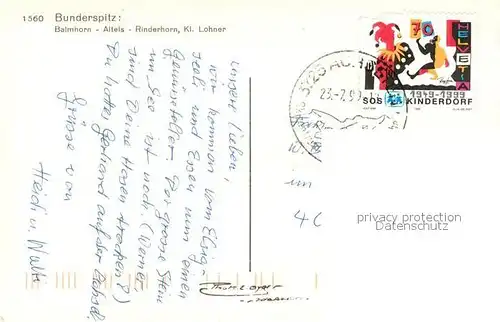 1560 Bunderspitz:
Balmhorn - Altels - Rinderhorn, Kl. Lohner
70 HELVETIA
SOS KINDERDORF
1949-1999
23.-7.99
Unsere Lieben,
wir kommen vom Elsig-
seeli und Essen nun einen
Gemüseteller. Der grosse Stein
im See ist noch. (Werner
sind Deine Hosen trocken?)
Du hattest Gerhard auf der Achsel.
Grüsse von
Heidi u. Walti
4C
privacy protection
Datenschutz